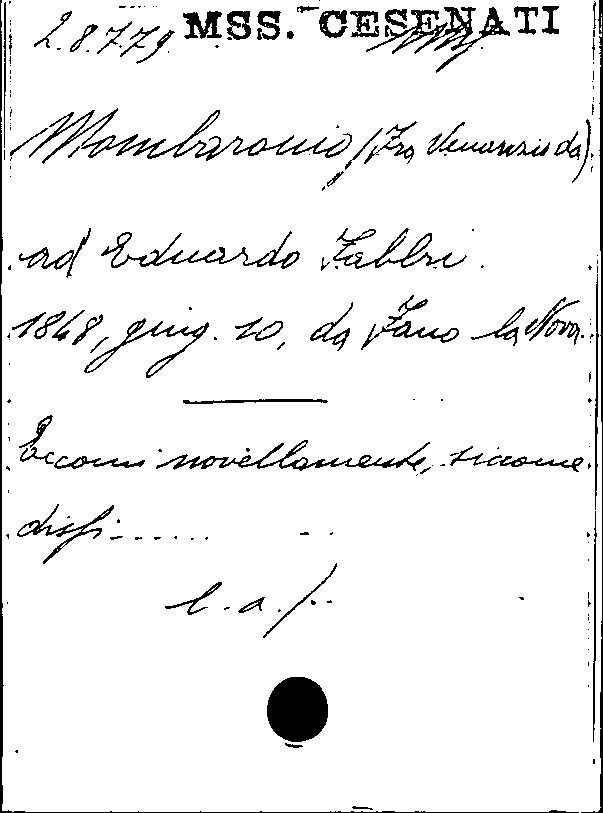 2.8.779 MSS. CESENATI
Mombaroccio (Fra Venanzio da)
ad Eduardo Fabbri.
1848, giug. 10, da Fano la Nova.
Eccomi novellamente, siccome
dissi......
l.a.f.